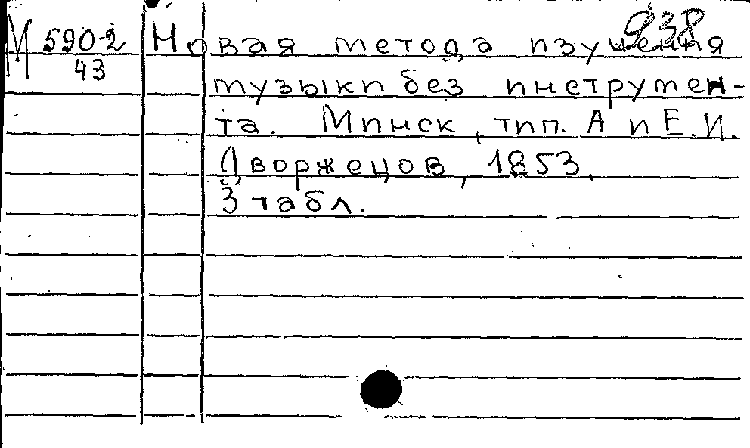 938
М 590-2 Новая метода изучения
43 музыки без инструмен-
та. Минск, тип. А и Е. И.
Дворжецов, 1853.
3 табл.